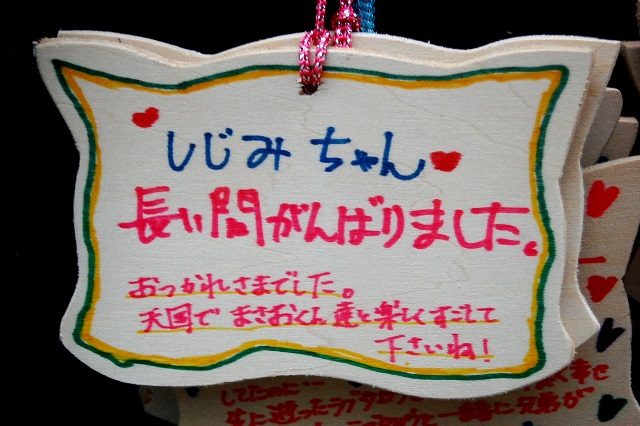 しじみちゃん
長い間がんばりました。
おつかれさまでした。
天国でまさおくん達と楽しくすごして
下さいね!